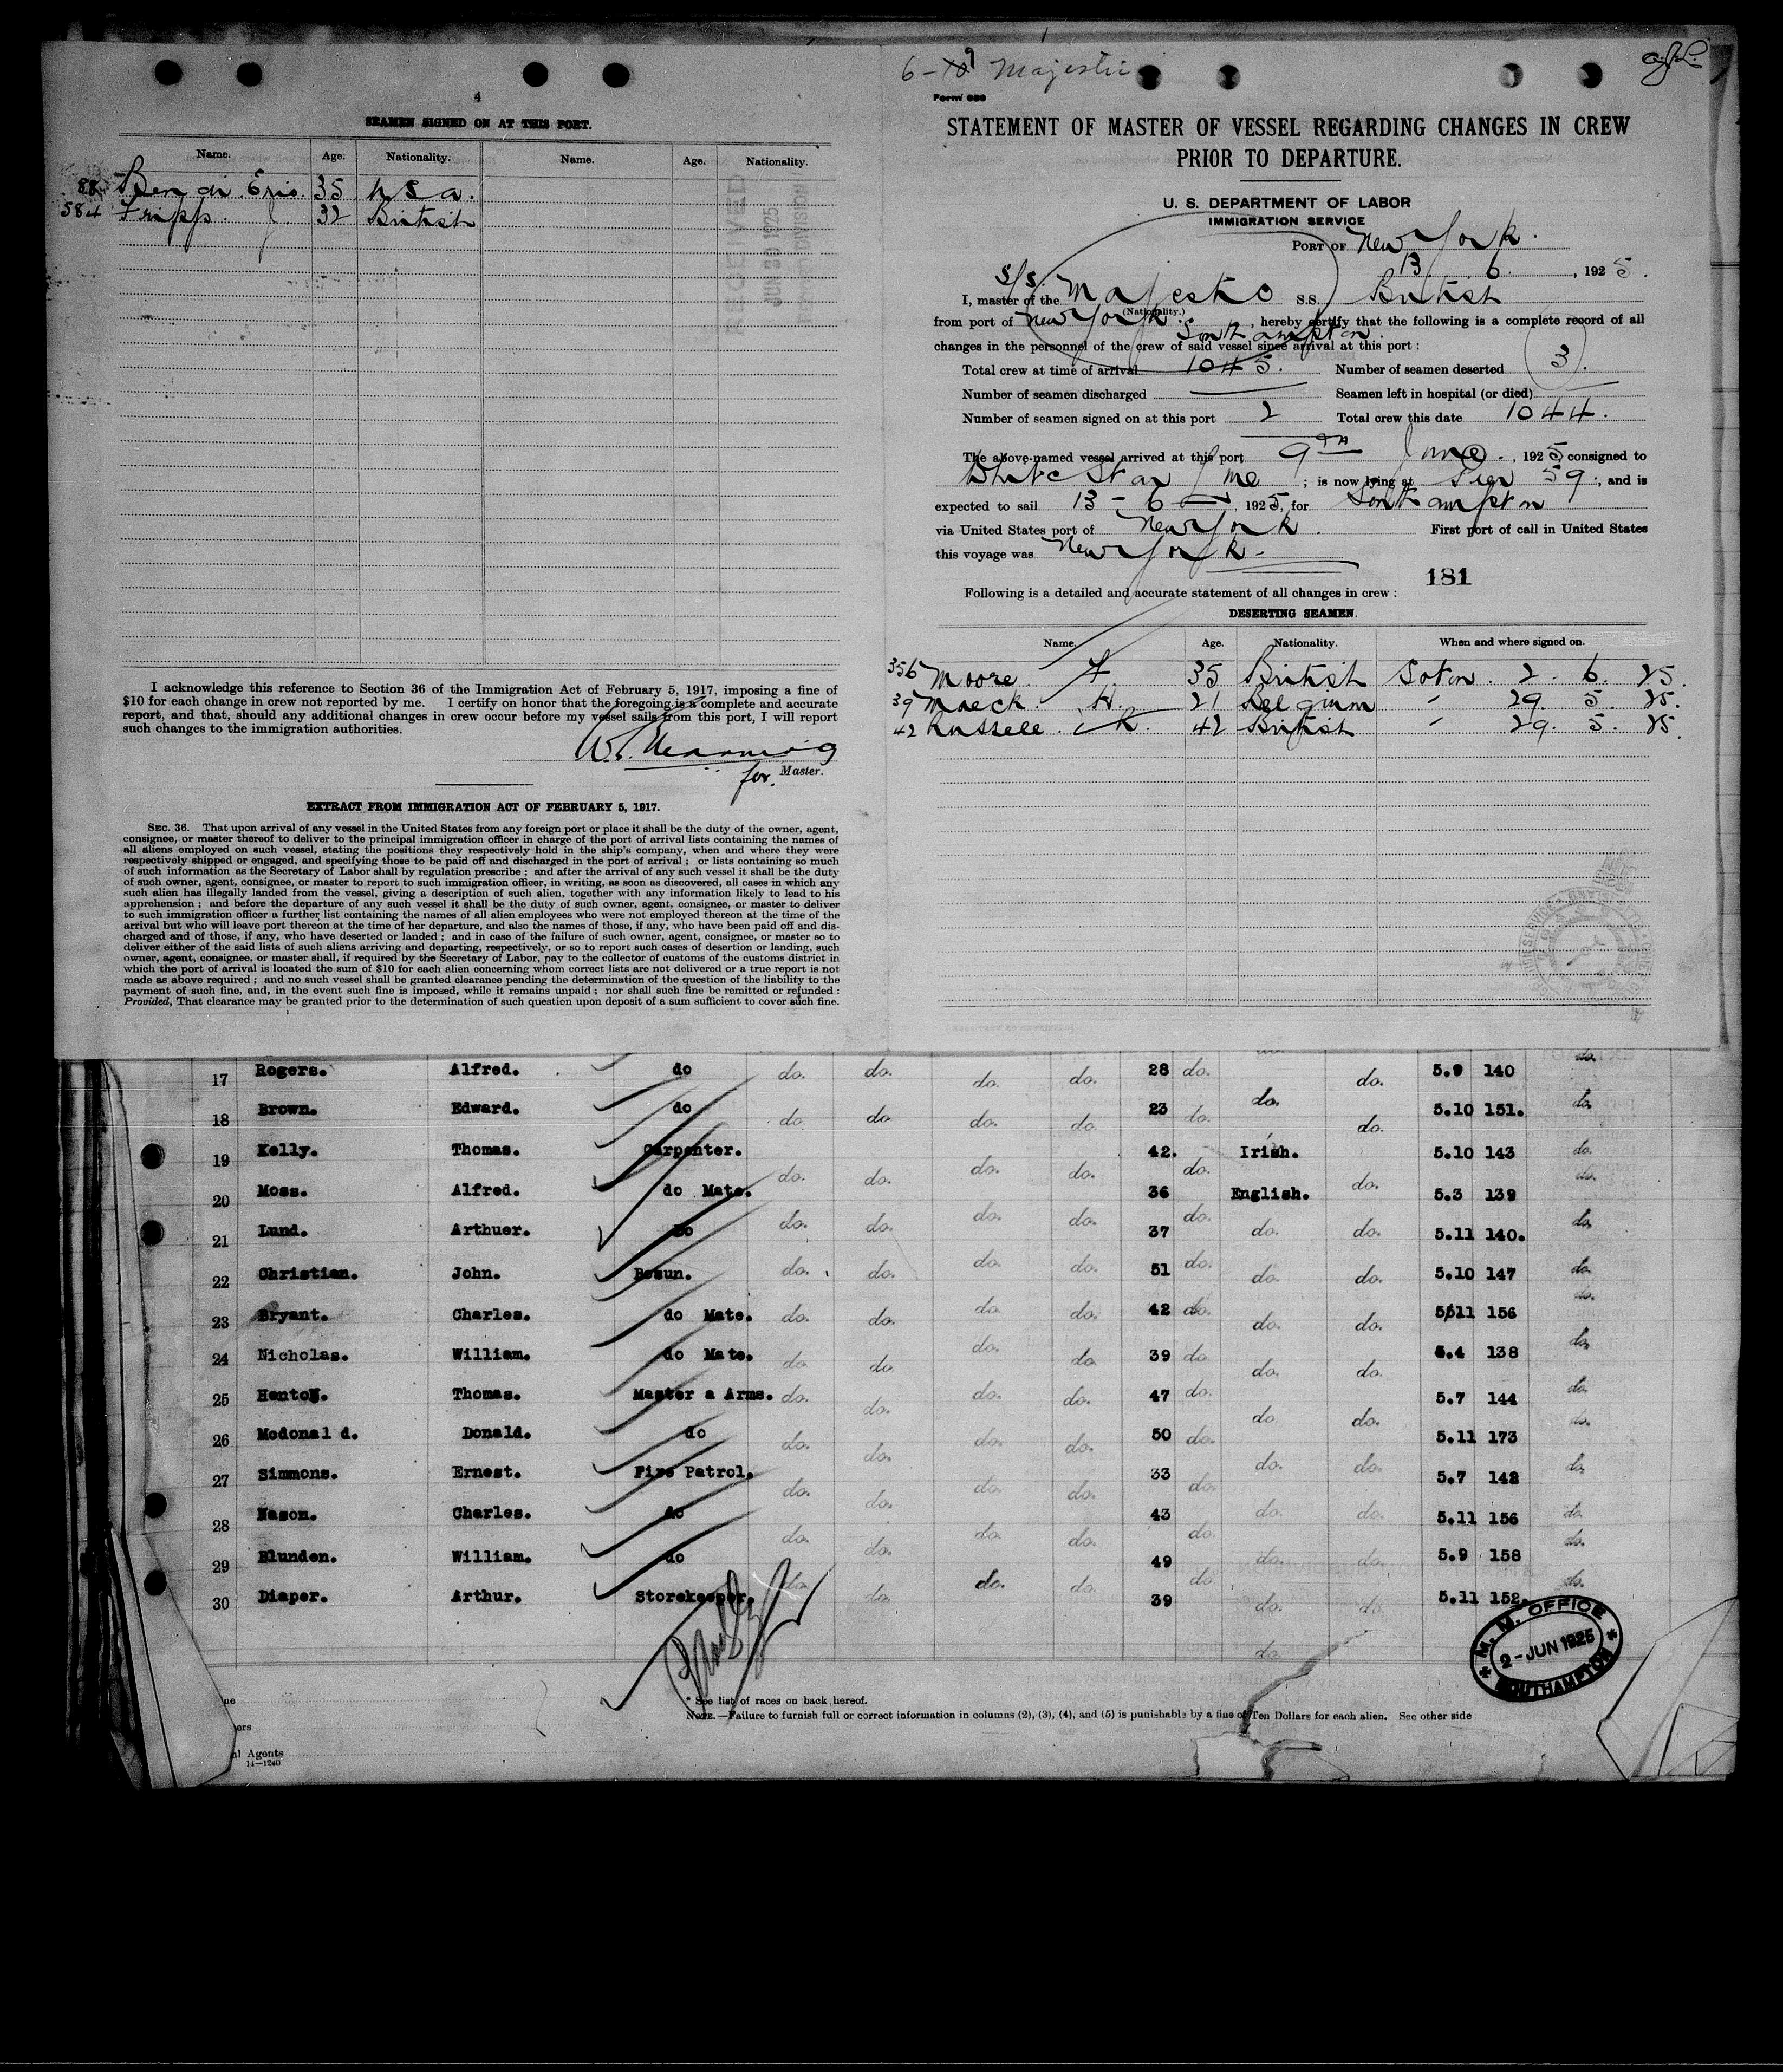 4
SEAMEN SIGNED ON AT THIS PORT.
Name. Age. Nationality. Name. Age. Nationality.
88 Eric. 35 U S A.
584 Fripp. J. 32 British
RECEIVED
JUN 20 1925
DIVISION
I acknowledge this reference to Section 36 of the Immigration Act of February 5, 1917, imposing a fine of
$10 for each change in crew not reported by me. I certify on honor that the foregoing is a complete and accurate
report, and that, should any additional changes in crew occur before my vessel sails from this port, I will report
such changes to the immigration authorities.
for. Master.
EXTRACT FROM IMMIGRATION ACT OF FEBRUARY 5, 1917.
SEC. 36. That upon arrival of any vessel in the United States from any foreign port or place it shall be the duty of the owner, agent,
consignee, or master thereof to deliver to the principal immigration officer in charge of the port of arrival lists containing the names of
all aliens employed on such vessel, stating the positions they respectively hold in the ship's company, when and where they were
respectively shipped or engaged, and specifying those to be paid off and discharged in the port of arrival ; or lists containing so much
of such information as the Secretary of Labor shall by regulation prescribe ; and after the arrival of any such vessel it shall be the duty
of such owner, agent, consignee, or master to report to such immigration officer, in writing, as soon as discovered, all cases in which any
such alien has illegally landed from the vessel, giving a description of such alien, together with any information likely to lead to his
apprehension ; and before the departure of any such vessel it shall be the duty of such owner, agent, consignee, or master to deliver
to such immigration officer a further list containing the names of all alien employees who were not employed thereon at the time of the
arrival but who will leave port thereon at the time of her departure, and also the names of those, if any, who have been paid off and dis-
charged and of those, if any, who have deserted or landed ; and in case of the failure of such owner, agent, consignee, or master so to
deliver either of the said lists of such aliens arriving and departing, respectively, or so to report such cases of desertion or landing, such
owner, agent, consignee, or master shall, if required by the Secretary of Labor, pay to the collector of customs of the customs district in
which the port of arrival is located the sum of $10 for each alien concerning whom correct lists are not delivered or a true report is not
made as above required ; and no such vessel shall be granted clearance pending the determination of the question of the liability to the
payment of such fine, and, in the event such fine is imposed, while it remains unpaid ; nor shall such fine be remitted or refunded :
Provided, That clearance may be granted prior to the determination of such question upon deposit of a sum sufficient to cover such fine.
Majestic
Form 689
STATEMENT OF MASTER OF VESSEL REGARDING CHANGES IN CREW
PRIOR TO DEPARTURE.
U. S. DEPARTMENT OF LABOR
IMMIGRATION SERVICE
PORT OF New York.
13 6. , 1925.
S/S.
I, master of the Majestic S.S. British
(Nationality.)
from port of New York. Southampton. , hereby certify that the following is a complete record of all
changes in the personnel of the crew of said vessel since arrival at this port :
Total crew at time of arrival 1045. Number of seamen deserted 3.
Number of seamen discharged Seamen left in hospital (or died)
Number of seamen signed on at this port 2 Total crew this date 1044.
The above-named vessel arrived at this port 9th June. , 1925, consigned to
White Star Line ; is now lying at Pier 59 , and is
expected to sail 13 - 6 , 1925, for Southampton
via United States port of New York. First port of call in United States
this voyage was New York.
181
Following is a detailed and accurate statement of all changes in crew :
DESERTING SEAMEN.
Name. Age. Nationality. When and where signed on.
356 Moore F. 35 British Soton. 2. 6. 25.
39 Maeck. H. 21 Belgium " 29. 5. 25.
42 Russell. R. 42 British " 29. 5. 25.
17 Rogers. Alfred. do do. do. do. do. 28 do. do. do. 5.9 140 do.
18 Brown. Edward. do do. do do. do. 23 do. do. do. 5.10 151. do.
19 Kelly. Thomas. Carpenter. do. do. do. do. 42. do. Irish. do. 5.10 143 do.
20 Moss. Alfred. do Mate. do. do. do. do. 36 do. English. do. 5.3 139 do.
21 Lund. Arthuer. Do do. do. do. do. 37 do. do. do. 5.11 140. do.
22 Christian. John. Bosun. do. do. do. do. 51 do. do. do. 5.10 147 do.
23 Bryant. Charles. do Mate. do. do. do. do. 42 do. do. do. 5/11 156 do.
24 Nicholas. William. do Mate. do. do do. do 39 do do. do. 5.4 138 do.
25 Henton. Thomas. Master a Arms. do. do. do. do. 47 do. do do. 5.7 144 do.
26 Mcdonal d. Donald. do do. do. do. do. 50 do. do. do. 5.11 173 do.
27 Simmons. Ernest. Fire Patrol. do. do. do. do. 33 do. do. do. 5.7 142 do.
28 Mason. Charles. do do. do. do. do. 43 do. do. do. 5.11 156 do.
29 Blunden. William. do do. do. do. do. 49 do. do. do. 5.9 158 do.
30 Diaper. Arthur. Storekeeper. do. do. do. do. 39 do. do. do. 5.11 152. do.
M. M. OFFICE
2 - JUN 1925
SOUTHAMPTON
* See list of races on back hereof.
NOTE.—Failure to furnish full or correct information in columns (2), (3), (4), and (5) is punishable by a fine of Ten Dollars for each alien. See other side
Agents
14—1240